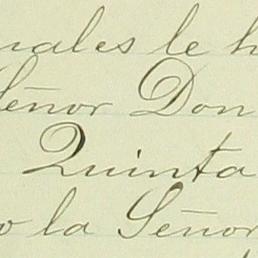 uales le h
Señor Don
Quinta
o la Señor